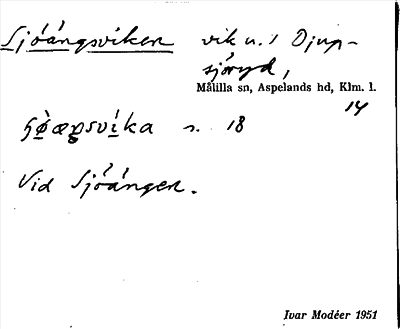 Sjöängsviken vik u. / Djup-
sjöryd,
Målilla sn, Aspelands hd, Klm. l.
14
s. 18
Vid Sjöängen.
Ivar Modéer 1951